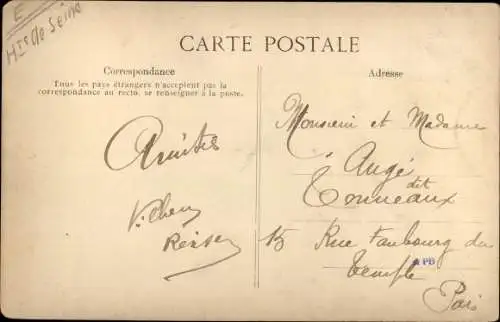 E
Hts de Seine
CARTE POSTALE
Correspondance
Tous les pays étrangers n'acceptent pas la
correspondance au recto. se renseigner à la poste.
Amitiés
Adresse
Monsieur et Madame
Augé
dit
Tonneaux
15 Rue Faubourg du
Temple
PB
Paris